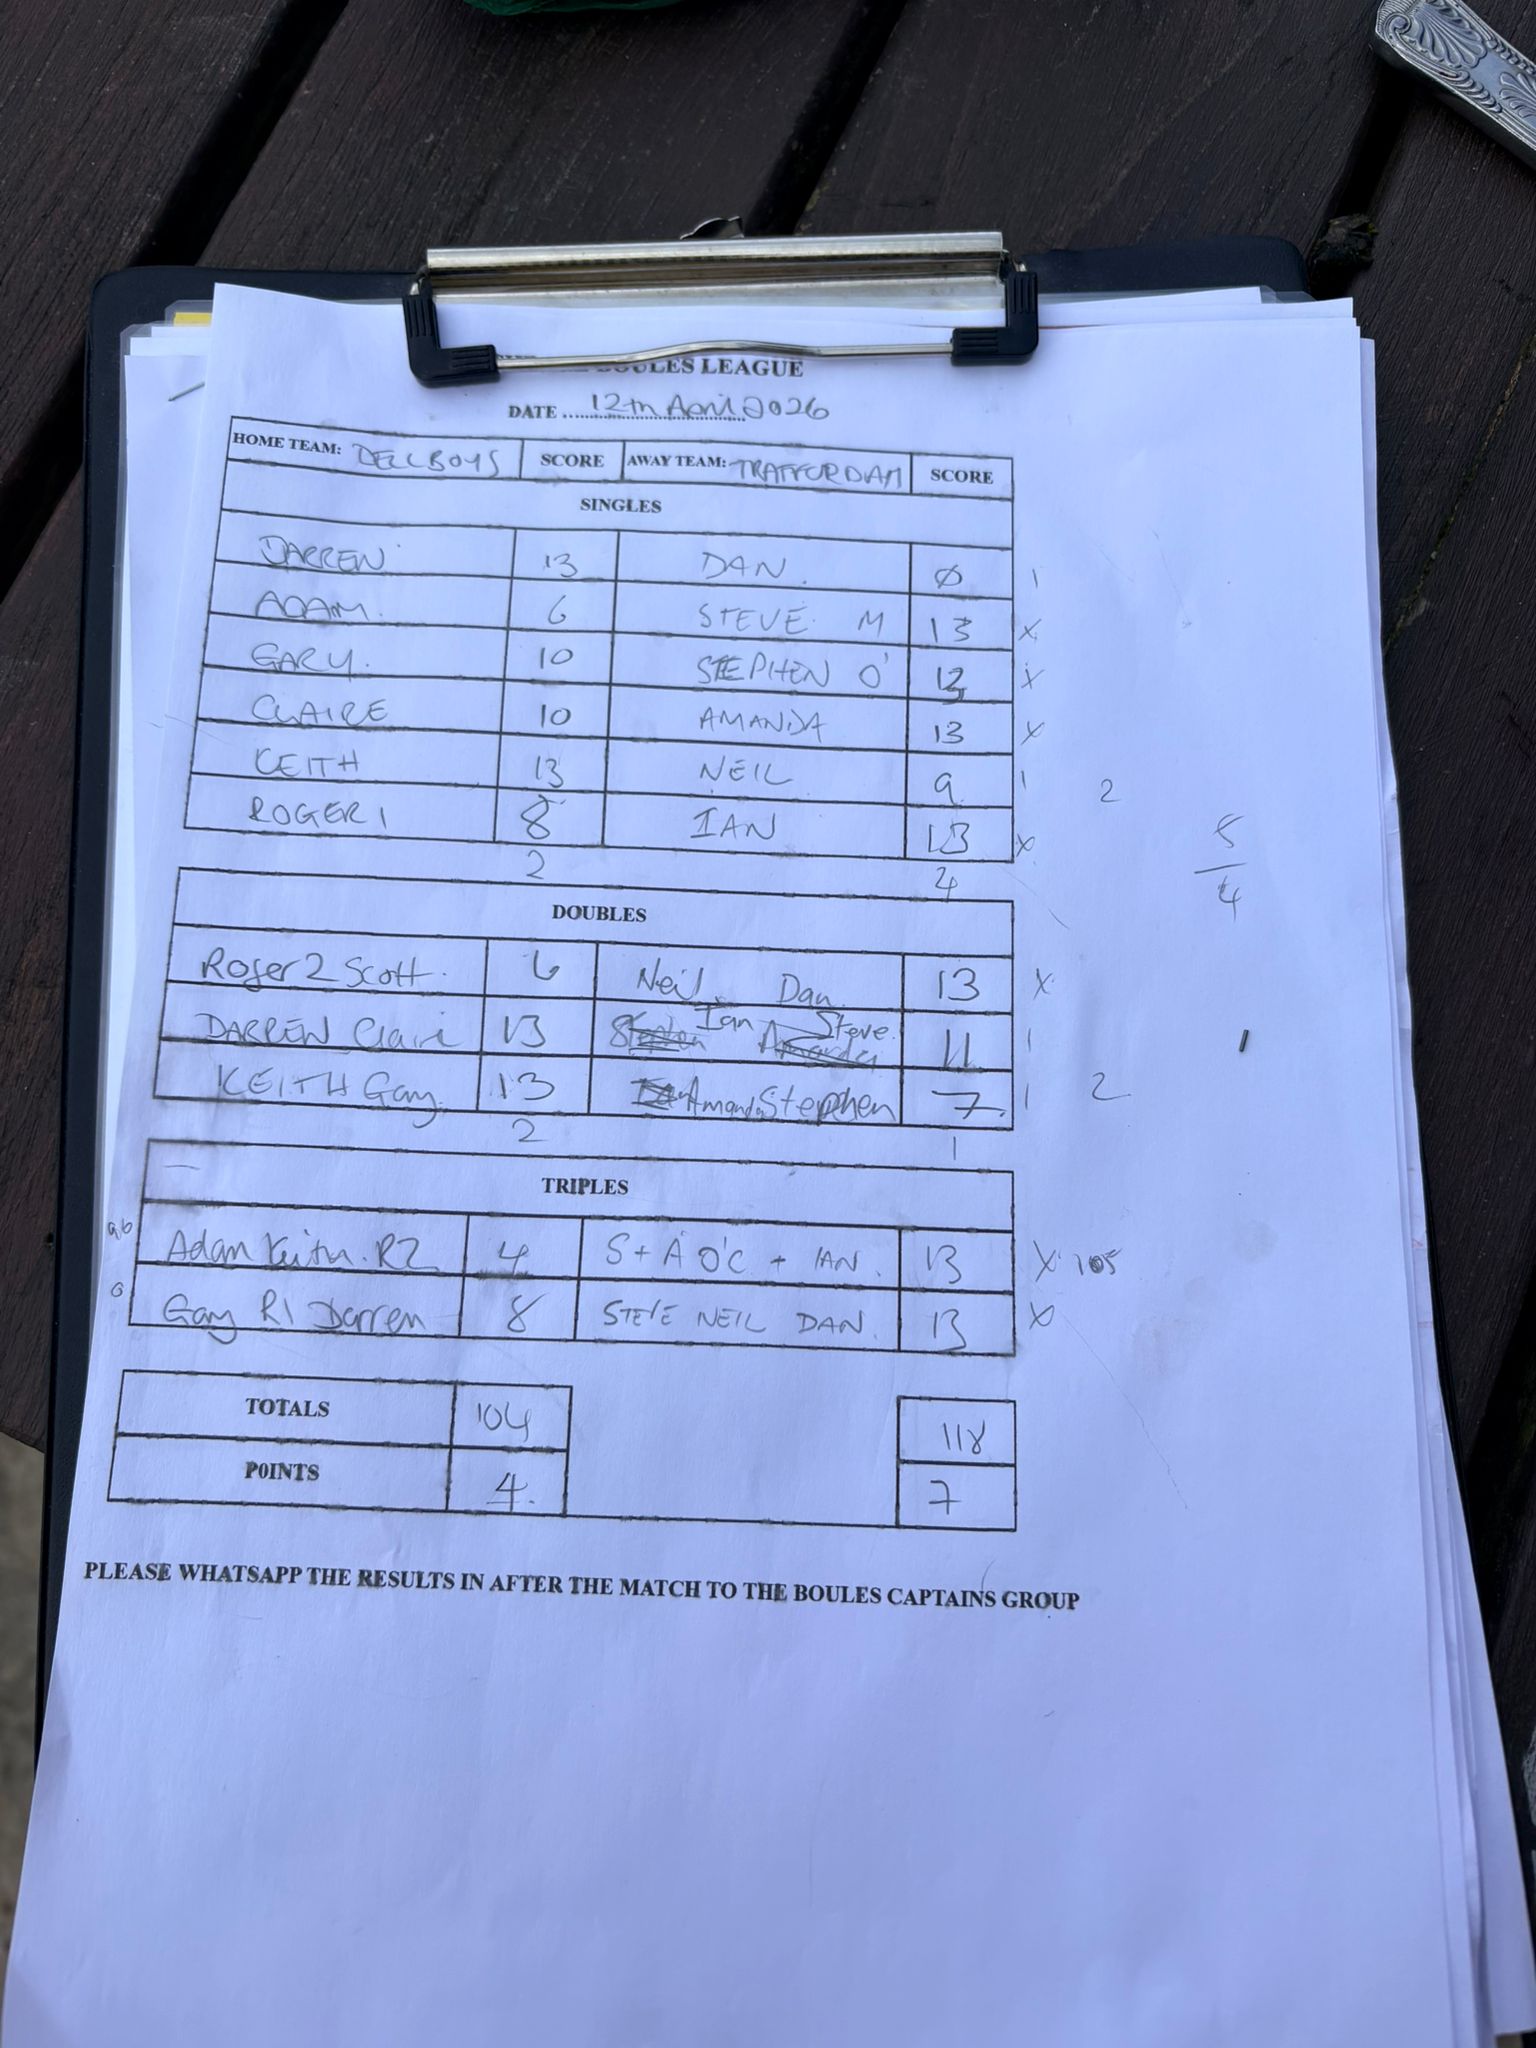 BOULES LEAGUE
DATE 12th April 2026
HOME TEAM: DELLBOYS SCORE AWAY TEAM: TRAFFORDIAN SCORE
SINGLES
DARREN 13 DAN 0 1
ADAM 6 STEVE M 13 x
GARY 10 STEPHEN O' 13 x
CLAIRE 10 AMANDA 13 x
KEITH 13 NEIL 9 1 2
ROGER 1 8 IAN 13 x
2 4
5
4
DOUBLES
Roger 2 Scott 6 Neil Dan 13 x
DARREN Claire 13 Ian Steve 11 1
KEITH Gary 13 Amanda Stephen 7 1 2
2 1
TRIPLES
Adam Keith R2 4 S + A O'C + IAN 13 x 105
Gary R1 Darren 8 STEVE NEIL DAN 13 x
TOTALS 104 118
POINTS 4 7
PLEASE WHATSAPP THE RESULTS IN AFTER THE MATCH TO THE BOULES CAPTAINS GROUP